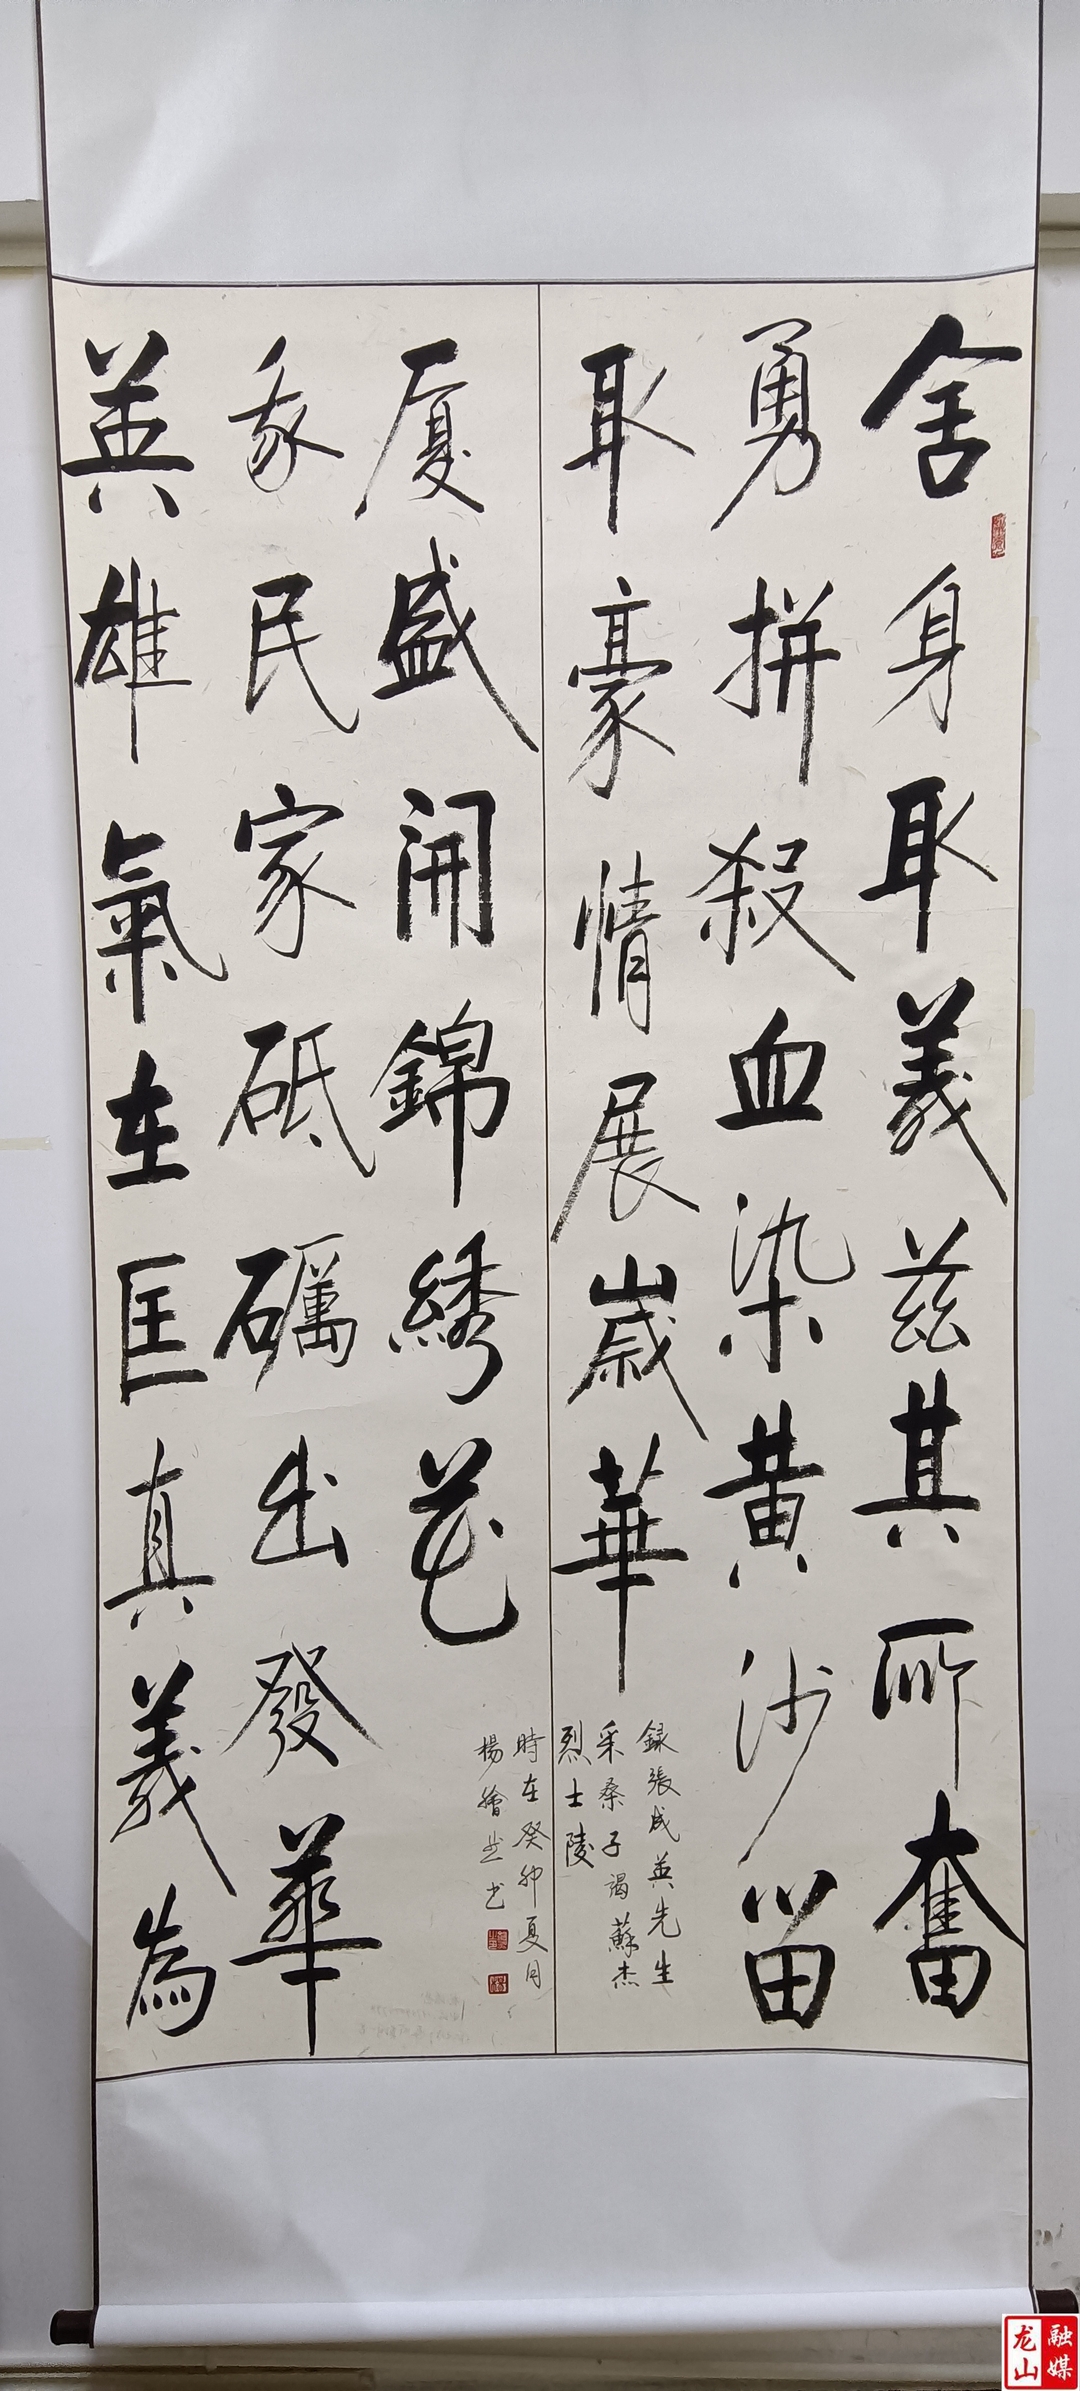 舍身取義茲其所奮
勇拼殺血染黄沙留
取豪情展歲華
録張成英先生
采桑子謁蘇杰
烈士陵
英雄氣在匡真義為
我民家砥礪出發華
廈盛開錦綉花
時在癸卯夏月
楊 书
龙山
融媒